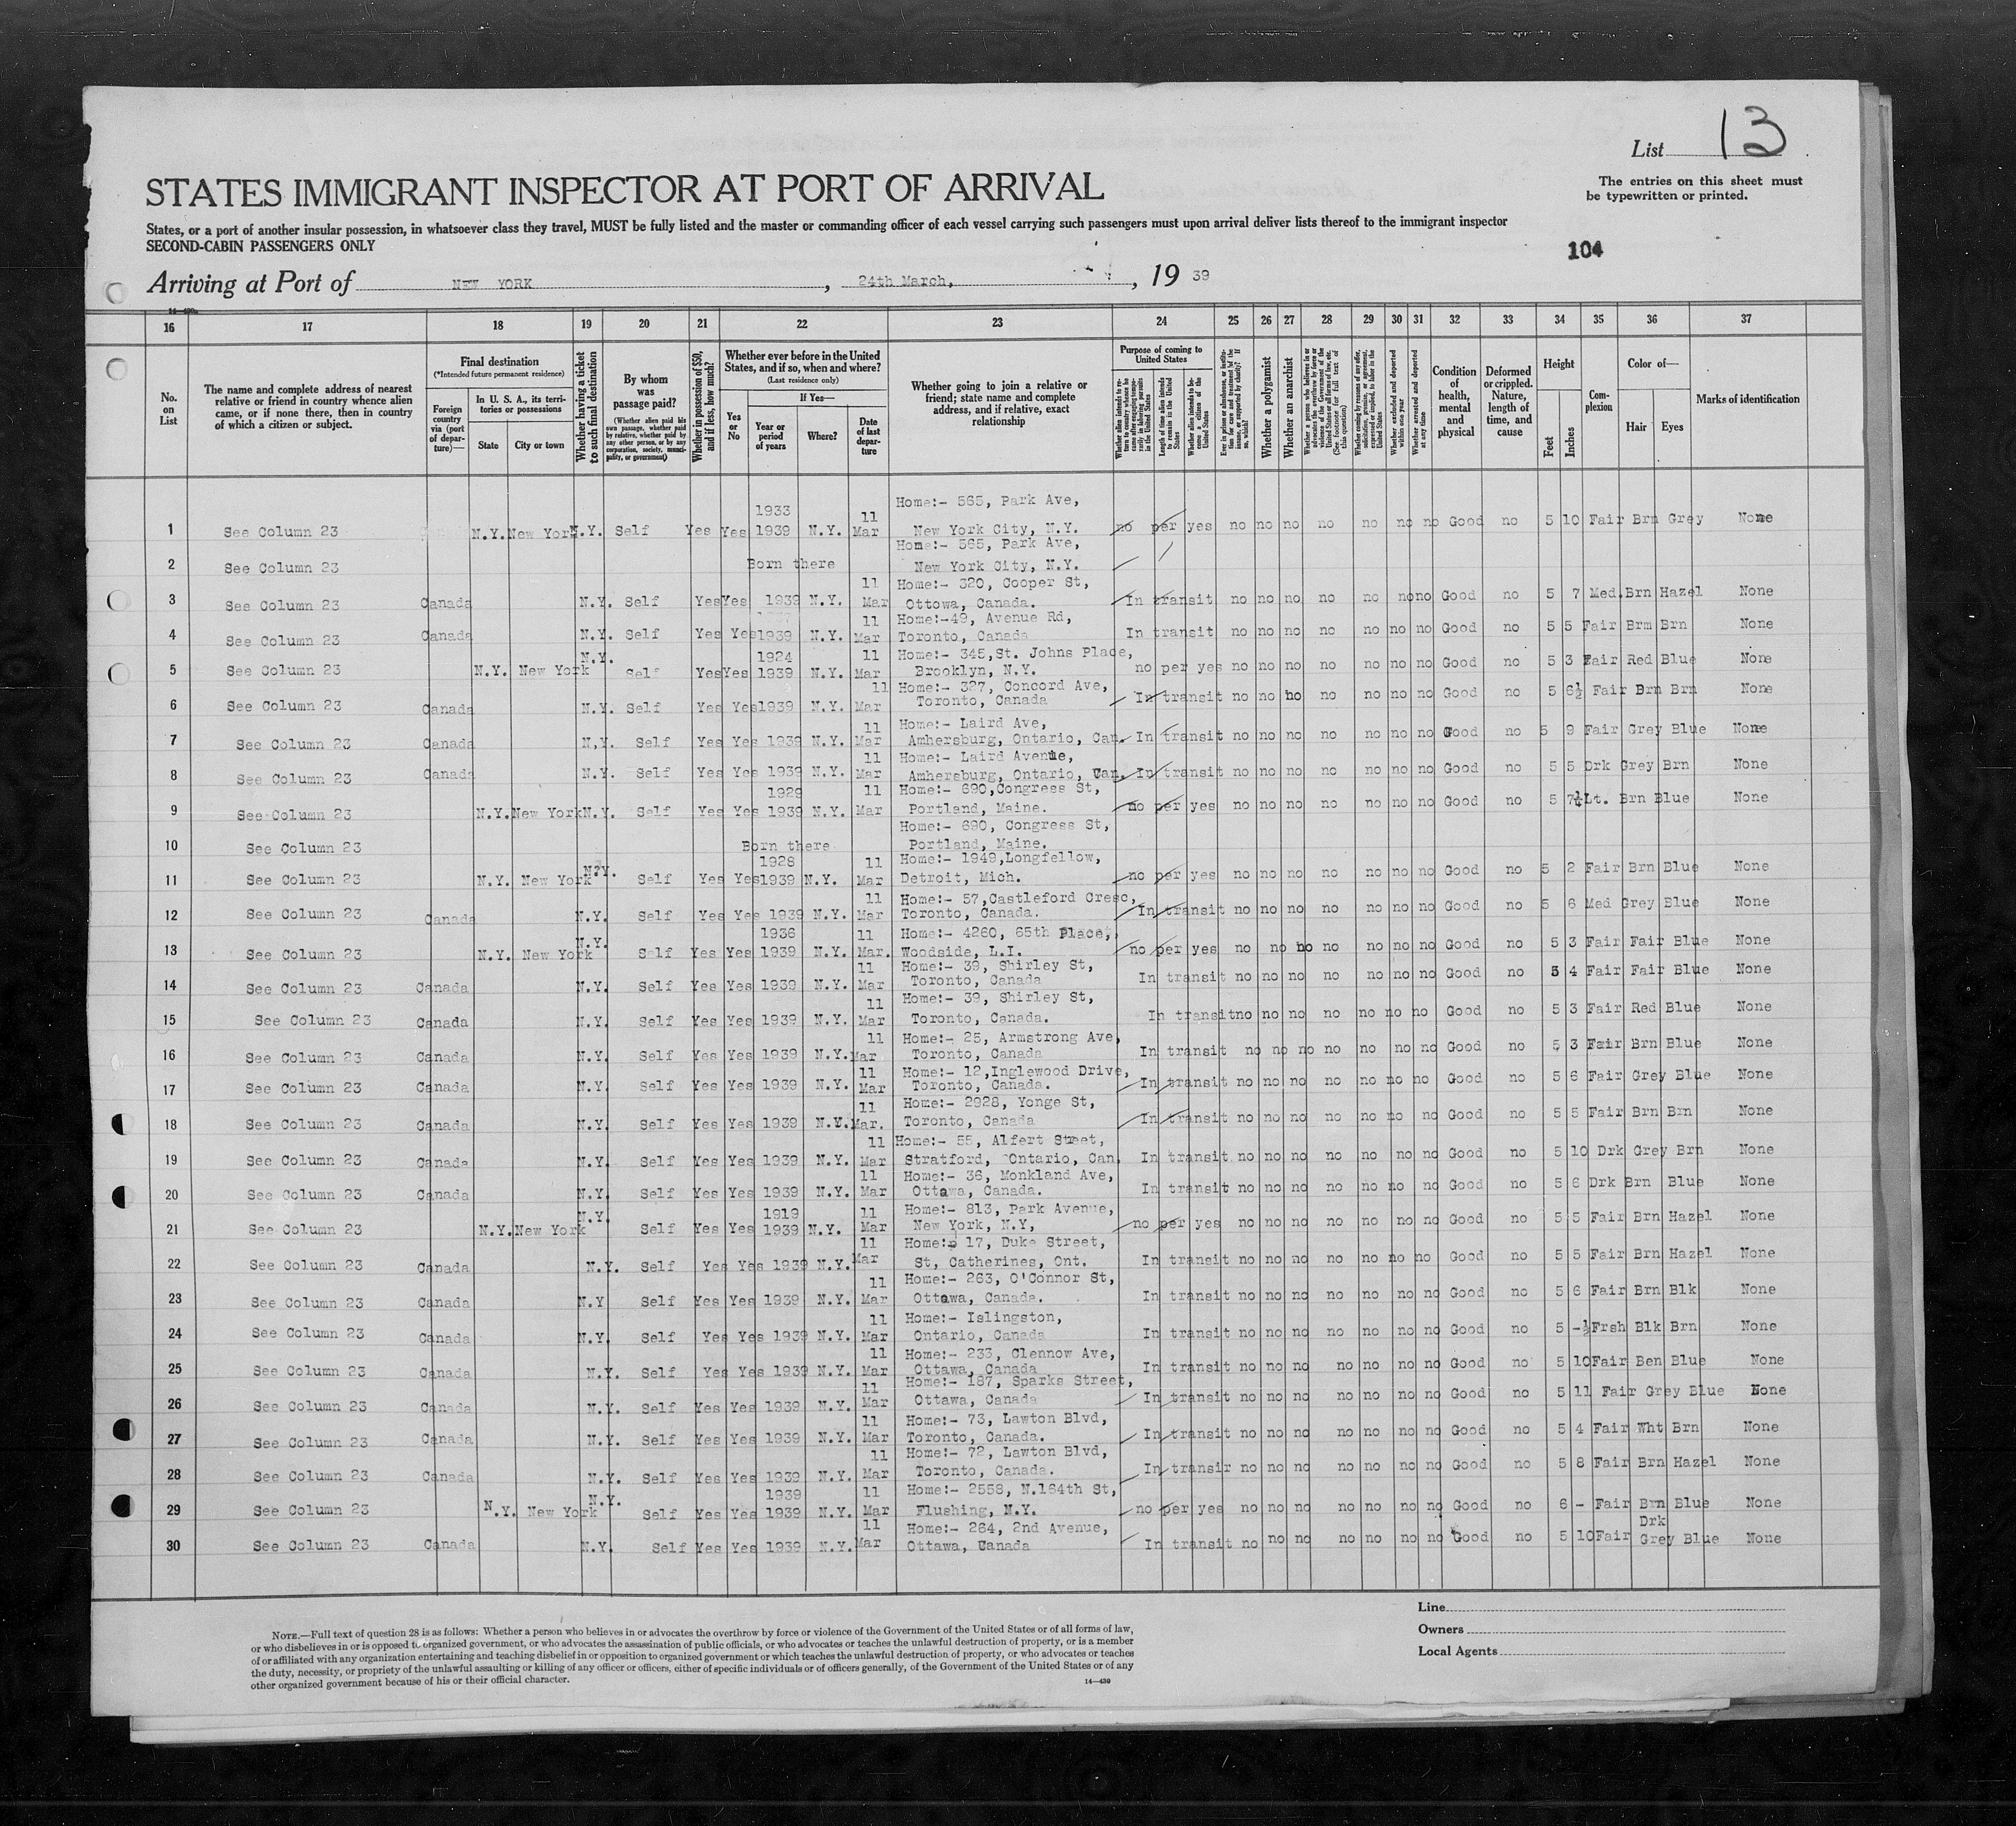 List 13
The entries on this sheet must
be typewritten or printed.
STATES IMMIGRANT INSPECTOR AT PORT OF ARRIVAL
States, or a port of another insular possession, in whatsoever class they travel, MUST be fully listed and the master or commanding officer of each vessel carrying such passengers must upon arrival deliver lists thereof to the immigrant inspector
SECOND-CABIN PASSENGERS ONLY
104
Arriving at Port of NEW YORK, 24th March, 19 39
16 17 18 19 20 21 22 23 24 25 26 27 28 29 30 31 32 33 34 35 36 37
No. on List
The name and complete address of nearest
relative or friend in country whence alien
came, or if none there, then in country
of which a citizen or subject.
Final destination
(*Intended future permanent residence)
Foreign country via (port of departure)—
In U. S. A., its territories or possessions
State
City or town
Whether having a ticket to such final destination
By whom was passage paid?
(Whether alien paid his own passage, whether paid by relative, whether paid by any other person, or by any corporation, society, municipality, or government)
Whether in possession of $50, and if less, how much?
Whether ever before in the United States, and if so, when and where?
(Last residence only)
Yes or No
If Yes—
Year or period of years
Where?
Date of last departure
Whether going to join a relative or
friend; state name and complete
address, and if relative, exact
relationship
Purpose of coming to United States
Length of time alien intends to remain in the United States
Whether alien intends to become a citizen of the United States
Whether a polygamist
Whether an anarchist
Whether excluded and deported within one year
Whether arrested and deported at any time
Condition of health, mental and physical
Deformed or crippled. Nature, length of time, and cause
Height
Feet
Inches
Complexion
Color of—
Hair
Eyes
Marks of identification
1 See Column 23 N.Y. New York N.Y. Self Yes Yes 1933 1939 N.Y. 11 Mar Home:- 565, Park Ave, New York City, N.Y. no per yes no no no no no no no Good no 5 10 Fair Brn Grey None
2 See Column 23 Born there Home:- 565, Park Ave, New York City, N.Y.
3 See Column 23 Canada N.Y. Self Yes Yes 1939 N.Y. 11 Mar Home:- 320, Cooper St, Ottowa, Canada. In transit no no no no no no no Good no 5 7 Med. Brn Hazel None
4 See Column 23 Canada N.Y. Self Yes Yes 1939 N.Y. 11 Mar Home:-49, Avenue Rd, Toronto, Canada In transit no no no no no no no Good no 5 5 Fair Brm Brn None
5 See Column 23 N.Y. New York N.Y. Self Yes Yes 1924 1939 N.Y. 11 Mar Home:- 345,St. Johns Place, Brooklyn, N.Y. no per yes no no no no no no no Good no 5 3 Fair Red Blue None
6 See Column 23 Canada N.Y. Self Yes Yes 1939 N.Y. 11 Mar Home:- 327, Concord Ave, Toronto, Canada In transit no no no no no no no Good no 5 6½ Fair Brn Brn None
7 See Column 23 Canada N,Y. Self Yes Yes 1939 N.Y. 11 Mar Home:- Laird Ave, Amhersburg, Ontario, Can. In transit no no no no no no no Good no 5 9 Fair Grey Blue None
8 See Column 23 Canada N.Y. Self Yes Yes 1939 N.Y. 11 Mar Home:- Laird Avenue, Amhersburg, Ontario, Can. In transit no no no no no no no Good no 5 5 Drk Grey Brn None
9 See Column 23 N.Y. New York N.Y. Self Yes Yes 1929 1939 N.Y. 11 Mar Home:- 690,Congress St, Portland, Maine. no per yes no no no no no no no Good no 5 7½ Lt. Brn Blue None
10 See Column 23 Born there Home:- 690, Congress St, Portland, Maine.
11 See Column 23 N.Y. New York N?Y. Self Yes Yes 1928 1939 N.Y. 11 Mar Home:- 1949,Longfellow, Detroit, Mich. no per yes no no no no no no no Good no 5 2 Fair Brn Blue None
12 See Column 23 Canada N.Y. Self Yes Yes 1939 N.Y. 11 Mar Home:- 57,Castleford Cresc, Toronto, Canada. In transit no no no no no no no Good no 5 6 Med Grey Blue None
13 See Column 23 N.Y. New York N.Y. Self Yes Yes 1936 1939 N.Y. 11 Mar. Home:- 4260, 65th Place, Woodside, L.I. no per yes no no no no no no no Good no 5 3 Fair Fair Blue None
14 See Column 23 Canada N.Y. Self Yes Yes 1939 N.Y. 11 Mar Home:- 39, Shirley St, Toronto, Canada In transit no no no no no no no Good no 5 4 Fair Fair Blue None
15 See Column 23 Canada N.Y. Self Yes Yes 1939 N.Y. 11 Mar Home:- 39, Shirley St, Toronto, Canada. In transit no no no no no no no Good no 5 3 Fair Red Blue None
16 See Column 23 Canada N.Y. Self Yes Yes 1939 N.Y. 11 Mar Home:- 25, Armstrong Ave, Toronto, Canada In transit no no no no no no no Good no 5 3 Fair Brn Blue None
17 See Column 23 Canada N.Y. Self Yes Yes 1939 N.Y. 11 Mar Home:- 12,Inglewood Drive, Toronto, Canada. In transit no no no no no no no Good no 5 6 Fair Grey Blue None
18 See Column 23 Canada N.Y. Self Yes Yes 1939 N.Y. 11 Mar. Home:- 2928, Yonge St, Toronto, Canada In transit no no no no no no no Good no 5 5 Fair Brn Brn None
19 See Column 23 Canada N.Y. Self Yes Yes 1939 N.Y. 11 Mar Home:- 55, Alfert Street, Stratford, Ontario, Can. In transit no no no no no no no Good no 5 10 Drk Grey Brn None
20 See Column 23 Canada N.Y. Self Yes Yes 1939 N.Y. 11 Mar Home:- 36, Monkland Ave, Ottawa, Canada. In transit no no no no no no no Good no 5 6 Drk Brn Blue None
21 See Column 23 N.Y. New York N.Y. Self Yes Yes 1919 1939 N.Y. 11 Mar Home:- 813, Park Avenue, New York, N.Y, no per yes no no no no no no no Good no 5 5 Fair Brn Hazel None
22 See Column 23 Canada N.Y. Self Yes Yes 1939 N.Y. 11 Mar Home:- 17, Duke Street, St, Catherines, Ont. In transit no no no no no no no Good no 5 5 Fair Brn Hazel None
23 See Column 23 Canada N.Y Self Yes Yes 1939 N.Y. 11 Mar Home:- 263, O'Connor St, Ottawa, Canada. In transit no no no no no no no Good no 5 6 Fair Brn Blk None
24 See Column 23 Canada N.Y. Self Yes Yes 1939 N.Y. 11 Mar Home:- Islingston, Ontario, Canada In transit no no no no no no no Good no 5 -½ Frsh Blk Brn None
25 See Column 23 Canada N.Y. Self Yes Yes 1939 N.Y. 11 Mar Home:- 233, Clennow Ave, Ottawa, Canada In transit no no no no no no no Good no 5 10 Fair Ben Blue None
26 See Column 23 Canada N.Y. Self Yes Yes 1939 N.Y. 11 Mar Home:- 187, Sparks Street, Ottawa, Canada In transit no no no no no no no Good no 5 11 Fair Grey Blue None
27 See Column 23 Canada N.Y. Self Yes Yes 1939 N.Y. 11 Mar Home:- 73, Lawton Blvd, Toronto, Canada. In transit no no no no no no no Good no 5 4 Fair Wht Brn None
28 See Column 23 Canada N.Y. Self Yes Yes 1939 N.Y. 11 Mar Home:- 72, Lawton Blvd, Toronto, Canada. In transir no no no no no no no Good no 5 8 Fair Brn Hazel None
29 See Column 23 N.Y. New York N.Y. Self Yes Yes 1939 1939 N.Y. 11 Mar Home:- 2558, N.164th St, Flushing, N.Y. no per yes no no no no no no no Good no 6 - Fair Brn Blue None
30 See Column 23 Canada N.Y. Self Yes Yes 1939 N.Y. 11 Mar Home:- 264, 2nd Avenue, Ottawa, Canada In transit no no no no no no no Good no 5 10 Fair Drk Grey Blue None
Line
Owners
Local Agents
NOTE.—Full text of question 28 is as follows: Whether a person who believes in or advocates the overthrow by force or violence of the Government of the United States or of all forms of law,
or who disbelieves in or is opposed to organized government, or who advocates the assassination of public officials, or who advocates or teaches the unlawful destruction of property, or is a member
of or affiliated with any organization entertaining and teaching disbelief in or opposition to organized government or which teaches the unlawful destruction of property, or who advocates or teaches
the duty, necessity, or propriety of the unlawful assaulting or killing of any officer or officers, either of specific individuals or of officers generally, of the Government of the United States or of any
other organized government because of his or their official character.
14—430